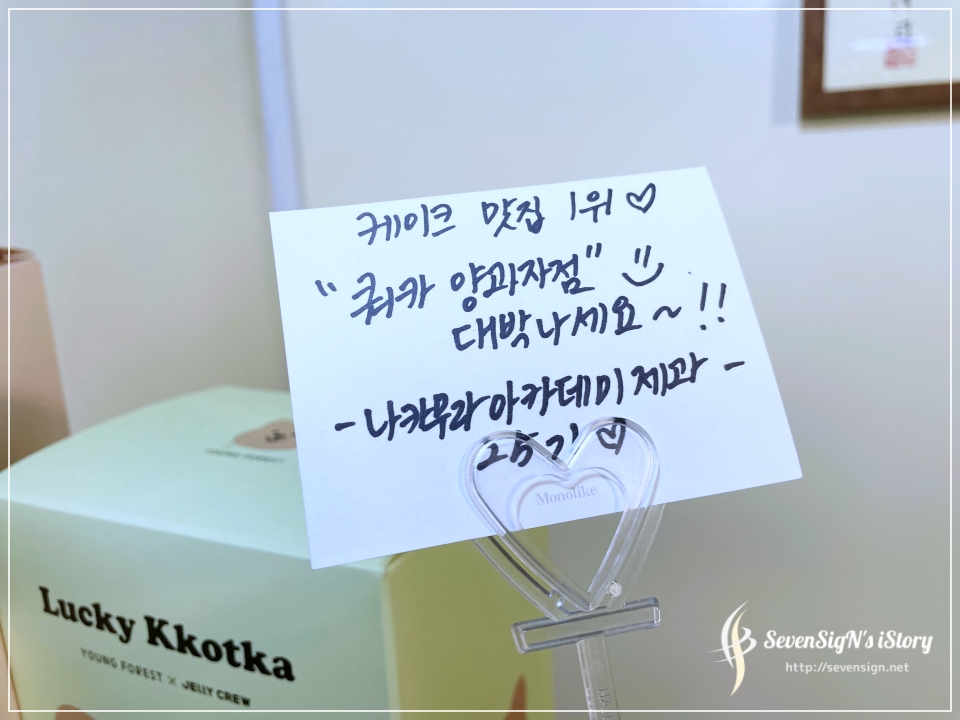 케이크 맛집 1위♡
"쿼카 양과자점"
대박나세요~!!
- 나카무라아카데미 제과 -
25기♡
Monolike
Lucky Kkotka
YOUNG FOREST × JELLY CREW
SevenSigN's iStory
http://sevensign.net